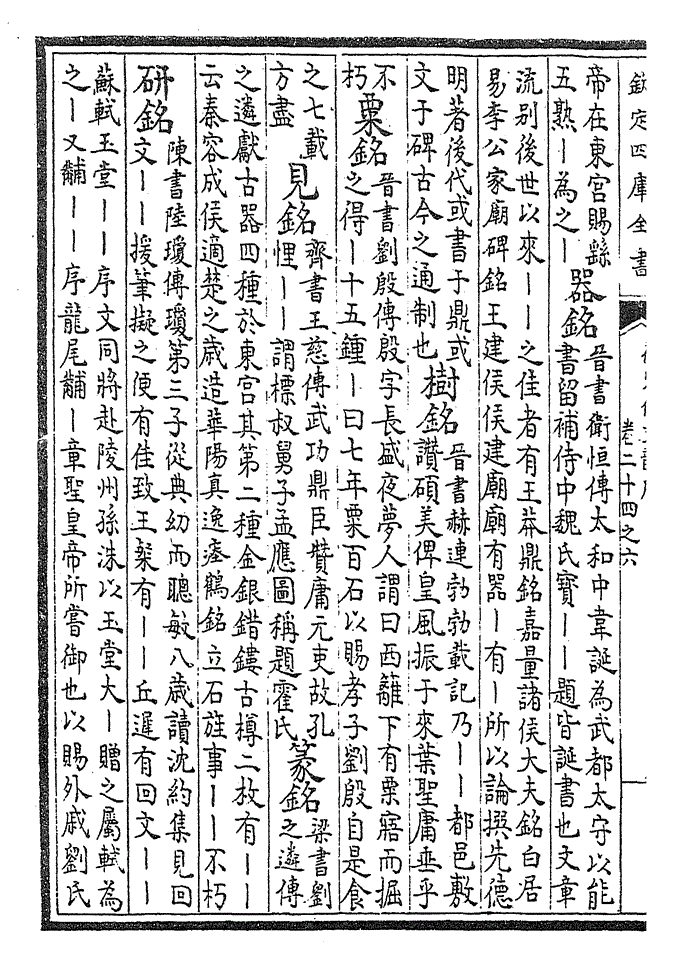 欽定四庫全書
卷二十四之六
帝在東宮賜繇
五熟丨為之丨
器銘
晉書衛恒傳太和中韋誕為武都太守以能
書留補侍中魏氏寳丨丨題皆誕書也文章
流别後世以來丨丨之佳者有王莽鼎銘嘉量諸侯大夫銘白居
易李公家廟碑銘王建侯侯建廟廟有器丨有丨所以論撰先德
明著後代或書于鼎或
文于碑古今之通制也
樹銘
晉書赫連勃勃載記乃丨丨都邑敷
讃碩美俾皇風振于來葉聖庸垂乎
不
朽
粟銘
晉書劉殷傳殷字長盛夜夢人謂曰西籬下有粟寤而掘
之得丨十五鍾丨曰七年粟百石以賜孝子劉殷自是食
之七載
方盡
見銘
齊書王慈傳武功鼎臣贊庸元吏故孔
悝丨丨謂標叔舅子孟應圖稱題霍氏
篆銘
梁書劉
之遴傳
之遴獻古器四種於東宮其第二種金銀錯鏤古樽二枚有丨丨
云秦容成侯適楚之歳造華陽真逸瘞鶴銘立石旌事丨丨不朽
研銘
陳書陸瓊傳瓊第三子從典幼而聰敏八歳讀沈約集見回
文丨丨援筆擬之便有佳致王粲有丨丨丘遲有回文丨丨
蘇軾玉堂丨丨序文同將赴陵州孫洙以玉堂大丨贈之屬軾為
之丨又黼丨丨序龍尾黼丨章聖皇帝所嘗御也以賜外戚劉氏